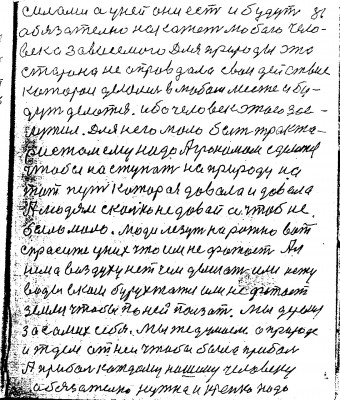 силами а у ней они есть и будут
обязателно накажет любого чело-
века зависемого Для природы это
сторона не оправдала свои действие
которои делалис в любом месте и бу-
дут делатся. ибо человек этого зас-
лужил. Для него мало быт тракто-
ристом ему надо Агрономом сделатся
чтобы наступат на природу на
тот пут которая довала и довала
А людям сколко не довай а чтоб не
было мало. Люди лезут на рожно вот
спросите у них что им не фотает Ал
нима воздуху нет чем дышат или нету
воды в кои будут жит им не фотает
земли чтобы по ней ползат. Мы думаем
за самих себя. Мы же думаем о природе
и ждем от ней чтобы была прибыл
А прибыл каждому нашему человеку
обязателно нужна и крепко надо